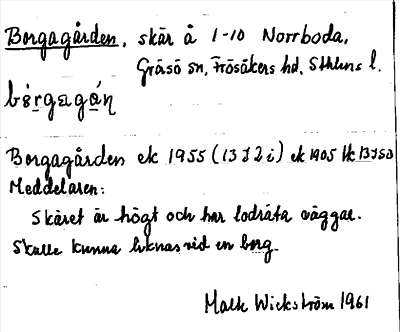 Borgagården, skär å 1-10 Norrboda,
Gräsö sn, Frösåkers hd, Sthlms l.
bèrgagán
Borgagården ek 1955 (13 I 2 i) ek 1905 bl 13 I 50
Meddelaren:
Skäret är högt och har lodräta väggar.
Skulle kunna liknas vid en borg.
Maln Wickström 1961